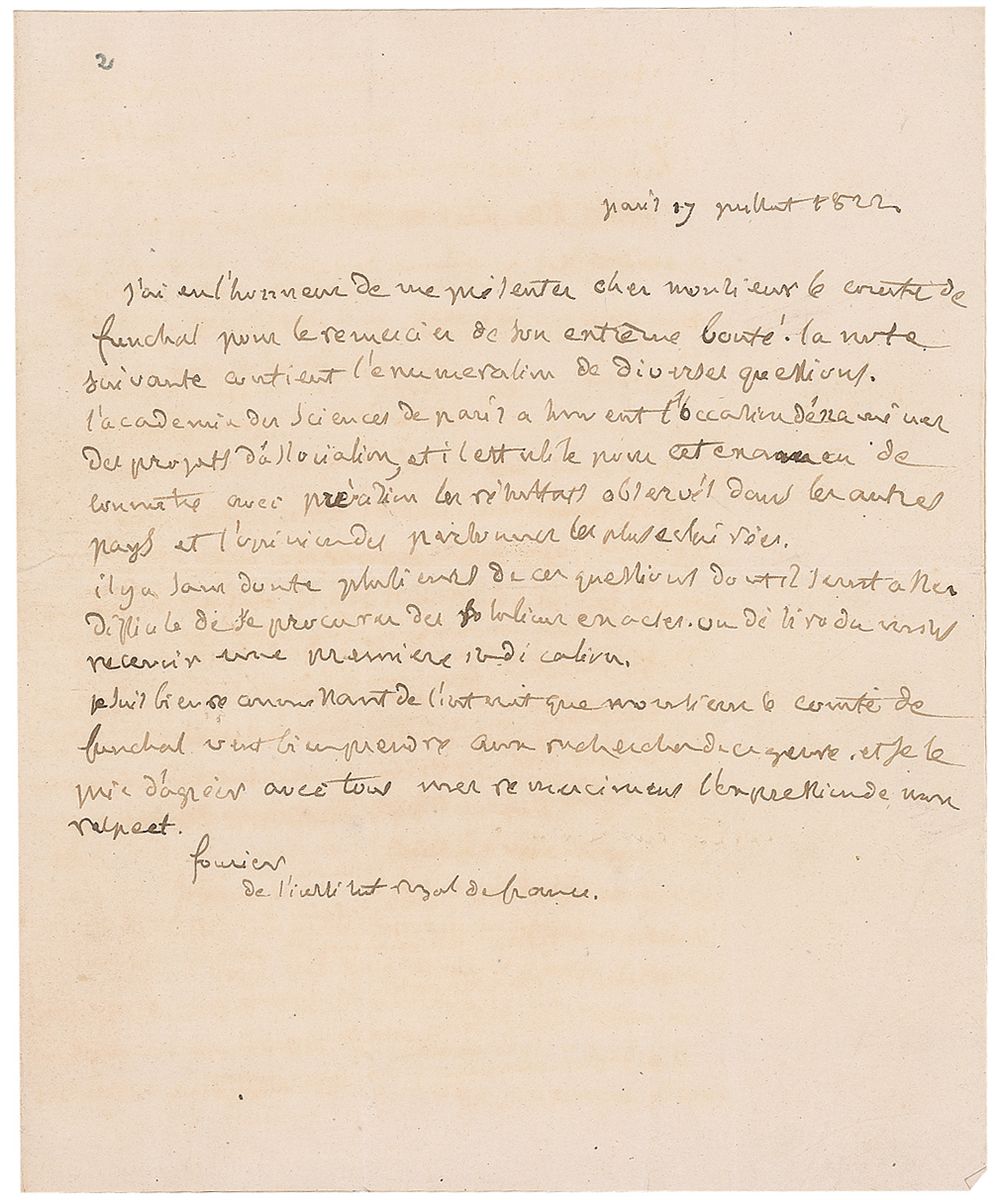 2
paris 17 juillet 1822.
J'ai eu l'honneur de me présenter cher monsieur le comte de
funchal pour le remercier de son extrême bonté. la note
suivante contient l'enumeration de diverses questions.
l'academie des sciences de paris a souvent l'occasion d'examiner
des projets d'association, et il est utile pour cet examen de
connaitre avec précision les résultats observés dans les autres
pays et l'opinion des personnes les plus eclairées.
il y a sans doute plusieurs de ces questions dont il serait assez
difficile de se procurer des solutions exactes. on désire du moins
recevoir une premiere indication.
je suis bien reconnaissant de l'intérêt que monsieur le comte de
funchal veut bien prendre aux recherches de ce genre. et je le
prie d'agréer avec tous mes remerciements l'expression de mon
respect.
fourier
de l'institut royal de france.